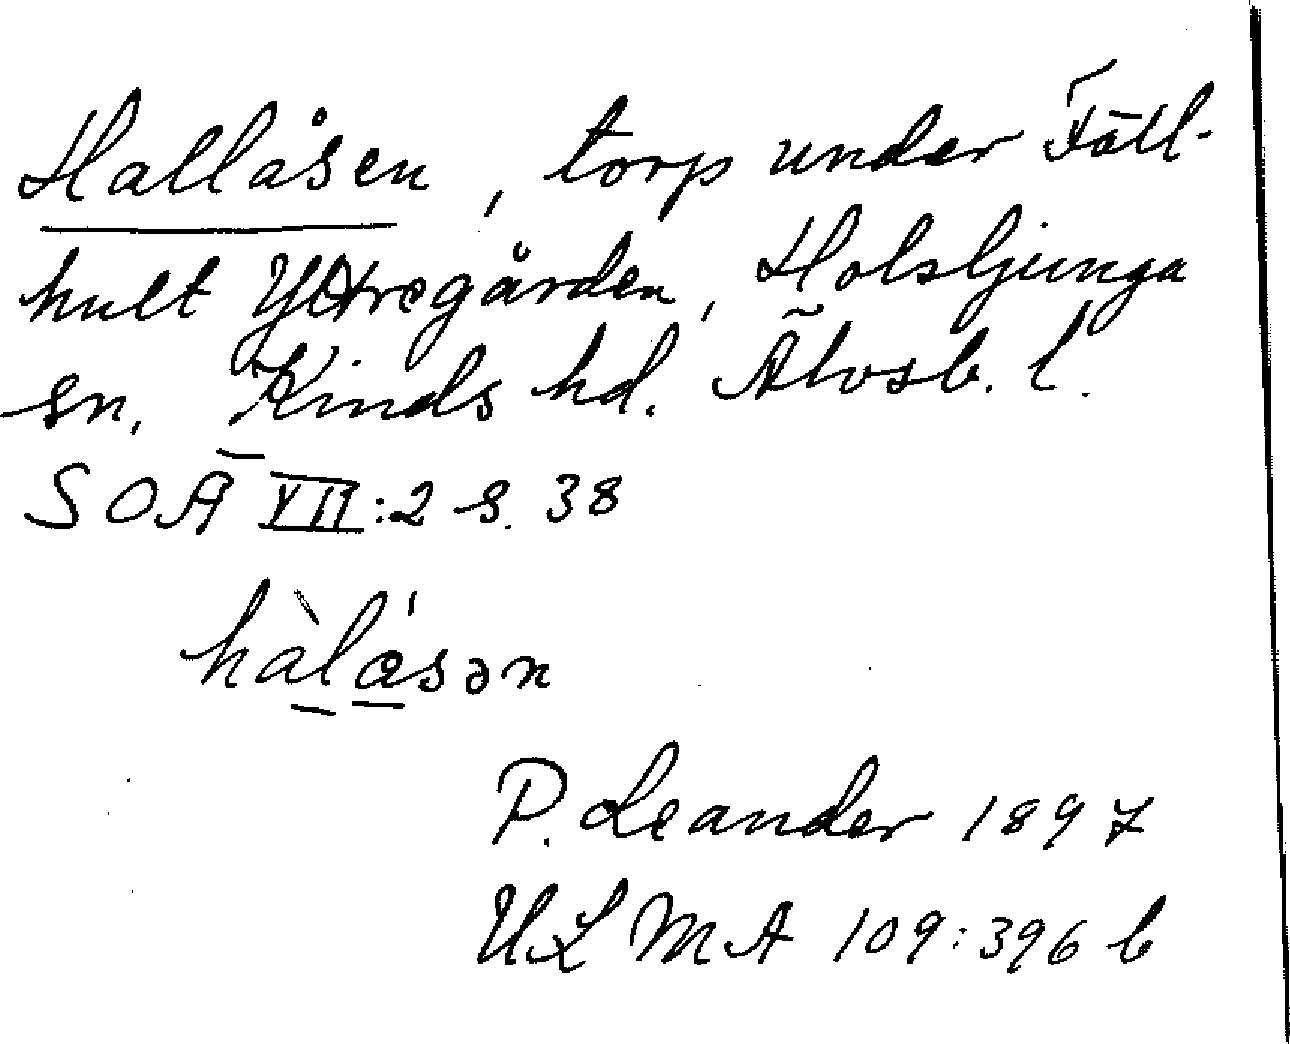 Hallåsen, torp under Fäll-
hult Yttregården, Holsljunga
sn. Kinds hd. Älvsb. l.
SOÄ VII:2 s. 38
hàlåsən
P. Leander 1897
ULMA 109:396 b